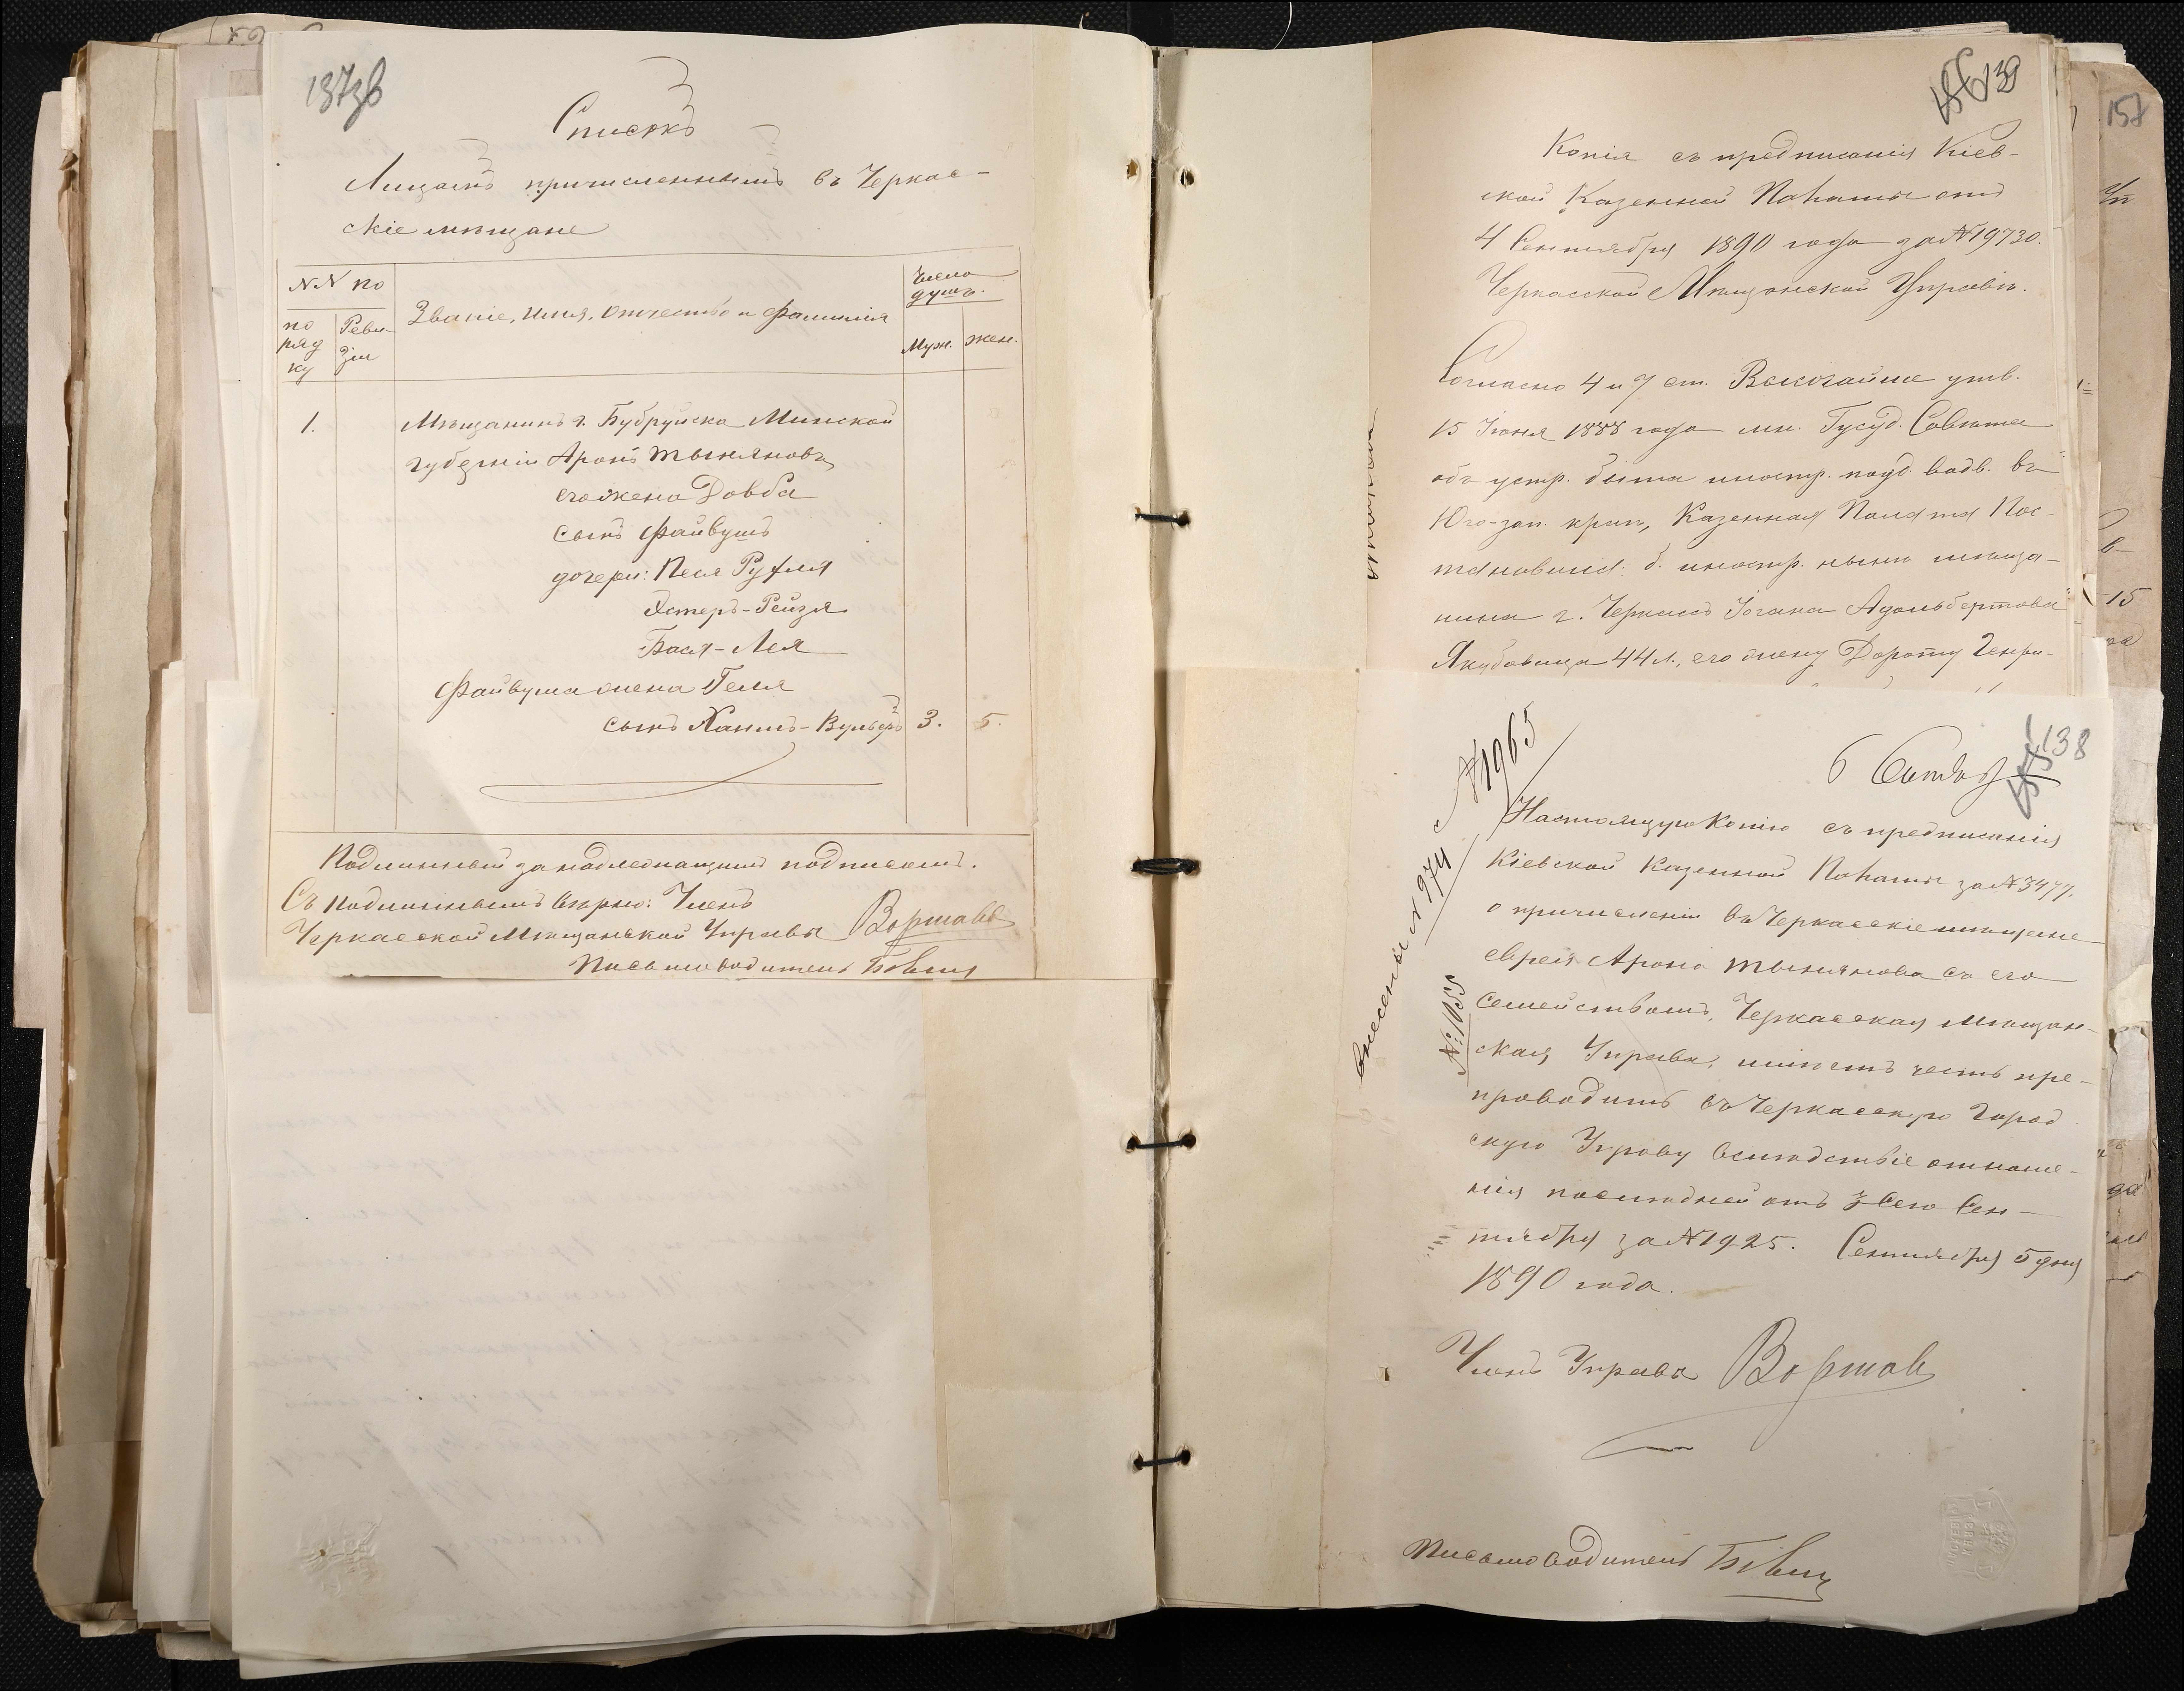 137зв
Списокъ
Лицамъ причисленнымъ въ Черкас-
скіе мѣщане
NN по
по
ряд
ку
Реви-
зіи
Званіе, имя, отчество и фамилія
Число
душъ.
Муж.
жен.
1.
Мѣщанинъ г. Бубруйска Минской
губерніи Аронъ Тыняновъ
его жена Довба
сынъ Файвушъ
дочери: Песя Рухля
Эстеръ-Рейзя
Бася-Лея
Файвуша жена Геля
сынъ Хаимъ-Вульфъ 3. 5.
Подлинный за надлежащимъ подписомъ.
Съ подлиннымъ вѣрно: Членъ
Черкасской Мѣщанской Управы
Письмоводитель
139
157
Копія съ предписанія Кіев-
ской Казенной Палаты отъ
4 Сентября 1890 года за №19730.
Черкасской Мѣщанской Управѣ.
Согласно 4 и 7 ст. Высочайше утв.
15 Іюня 1888 года мн. Гусуд. Совѣта
объ устр. быта иностр. позд. водв. въ
Юго-зап. краѣ, Казенная Палата Пос-
тановила: б. иностр. нынѣ мѣща-
нина г. Черкассъ Іогана Адольбертова
Якубовица 44 л., его жену Дороту Генри-
138
6 Сентяб
№1965
внесены № 974
№ 1055
Настоящую Копію съ предписанія
Кіевской Казенной Палаты за №3477,
о причисленіи въ Черкасскіе мѣщане
еврея Арона Тынянова съ его
семействомъ, Черкасская Мѣщан-
ская Управа, имѣетъ честь пре-
проводить въ Черкасскую Город
скую Управу вслѣдствіе отноше-
нія послѣдней отъ 3 сего Сен-
тября за №1925. Сентября 5 дня
1890 года.
Членъ Управы
Письмоводитель